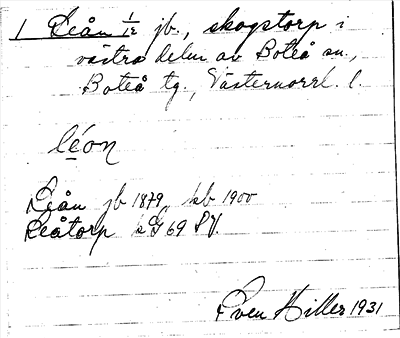 1 Leån 1/12 jb., skogstorp i
västra delen av Boteå sn.,
Boteå tg., Västernorrl. l.
léon
Leån jb 1879, kb 1900
Leåtorp kG 69 SV.
Sven Hiller 1931